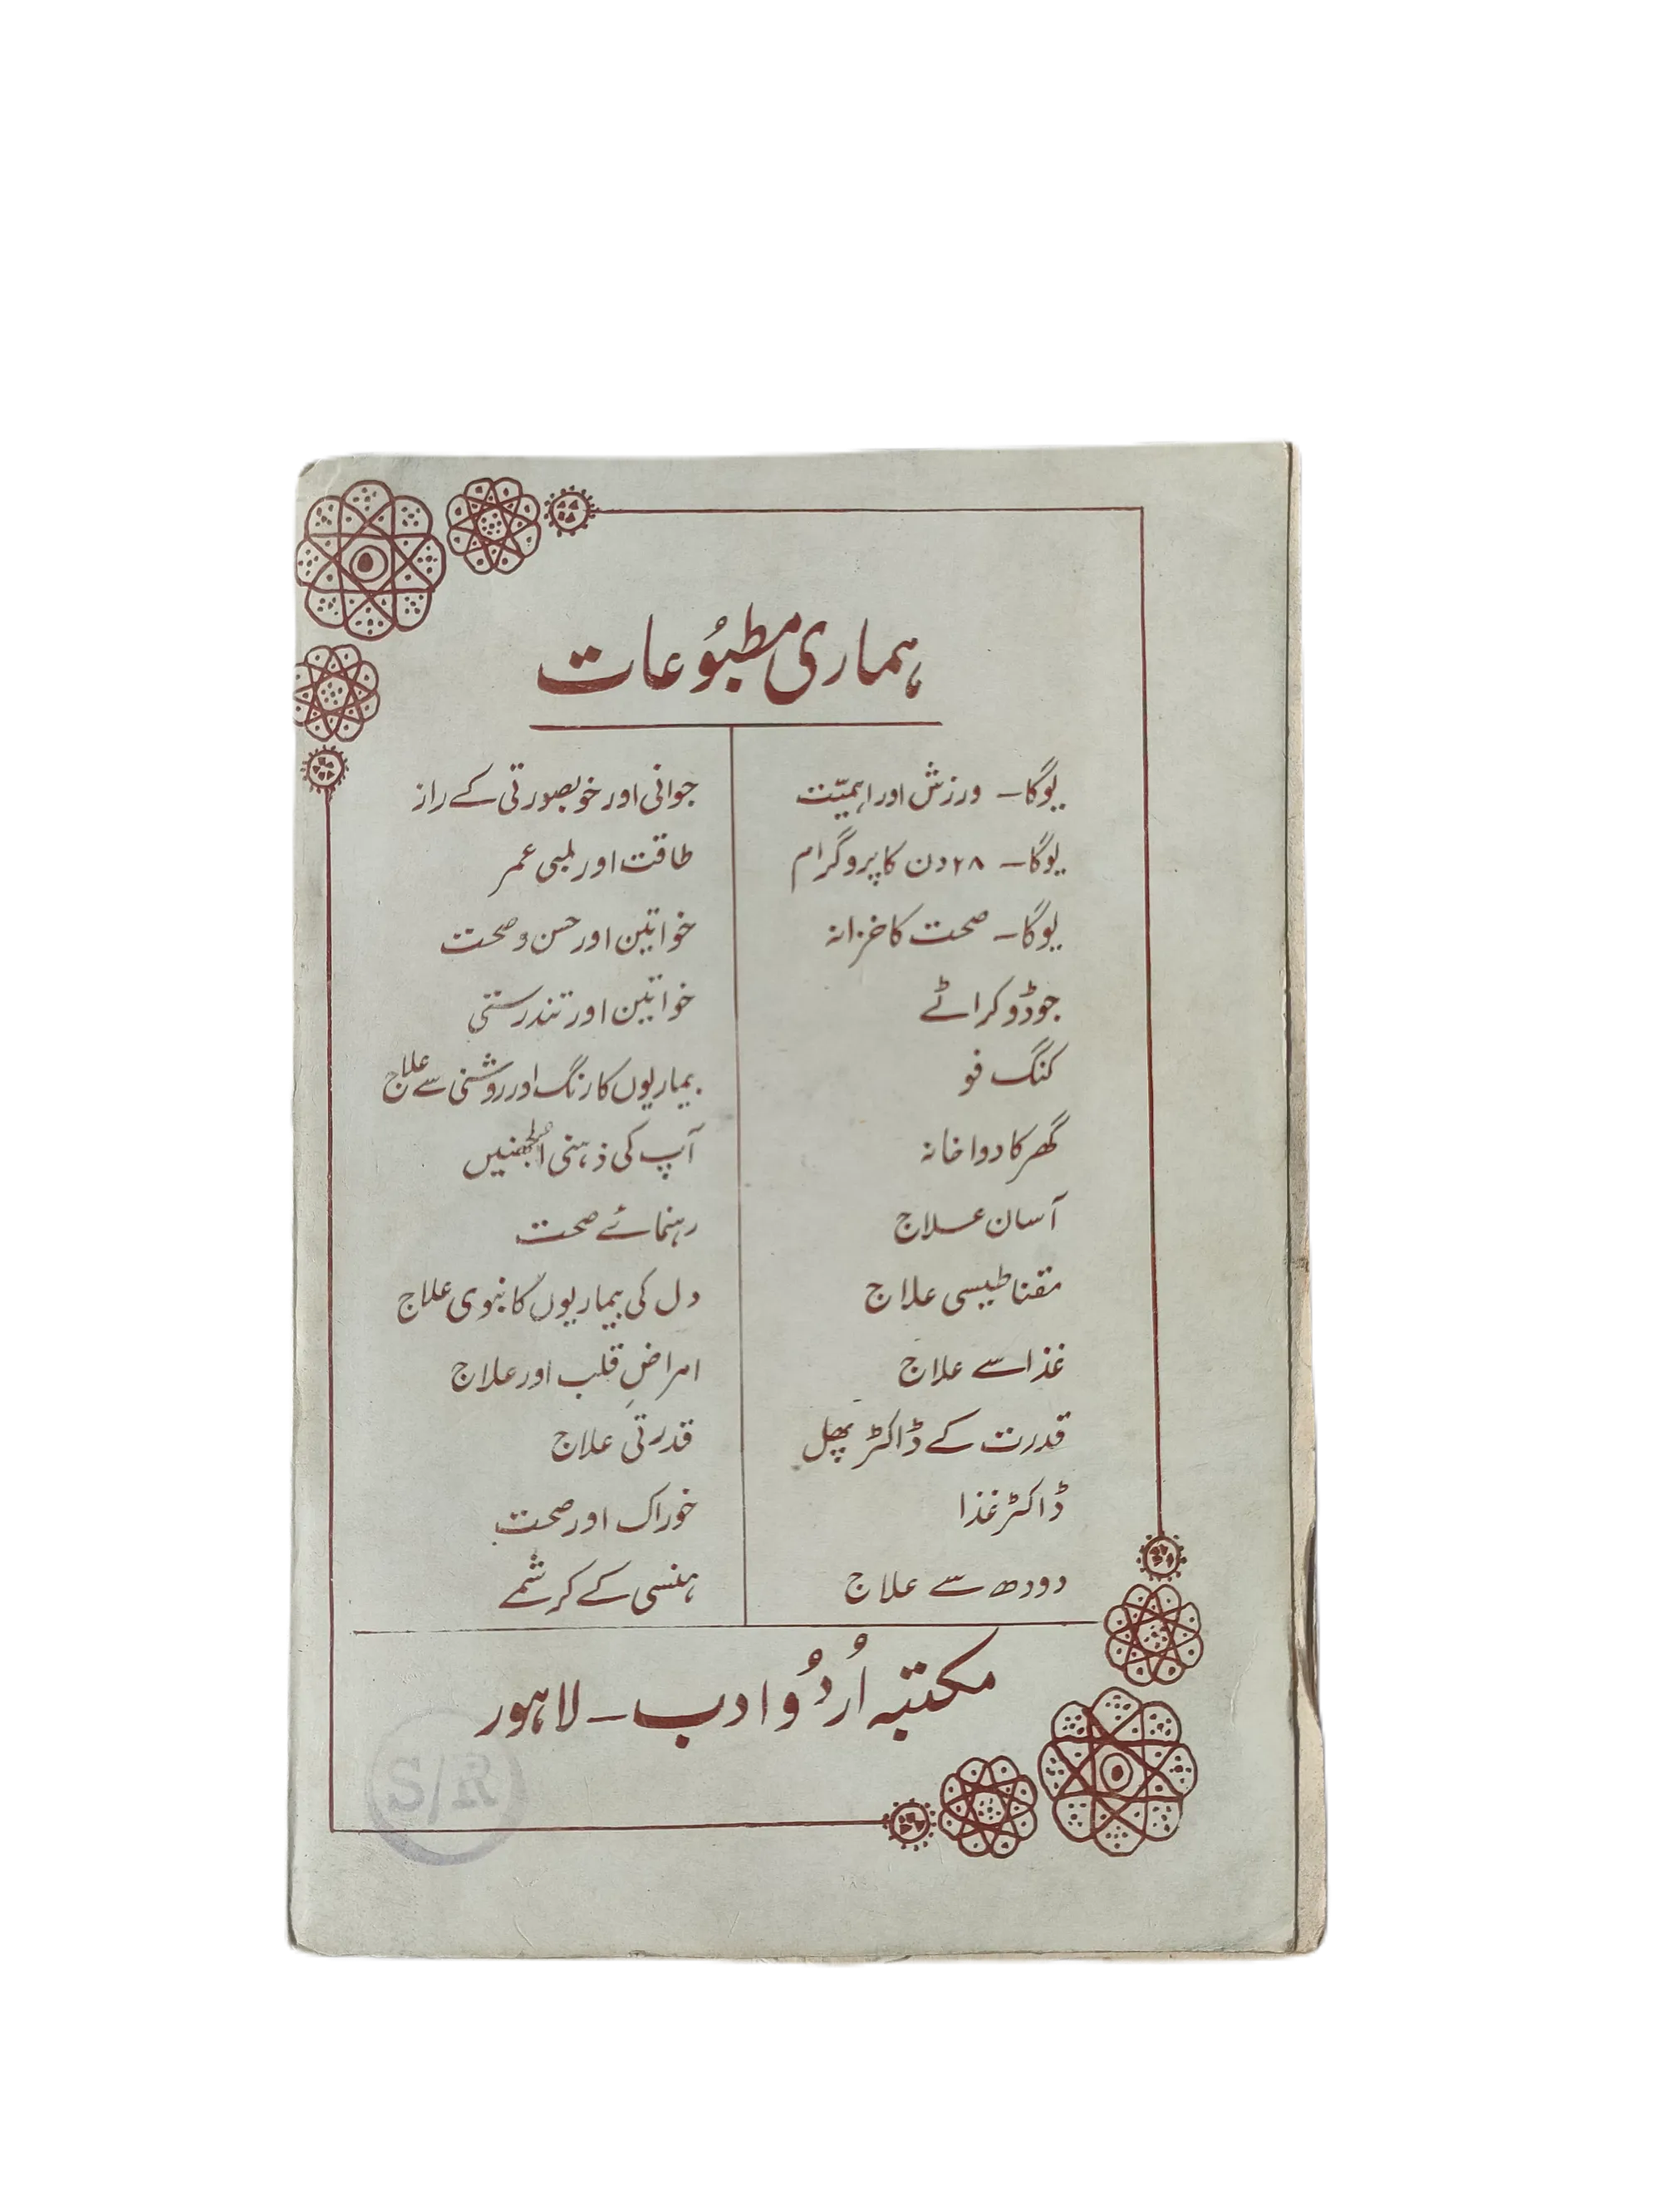 ہماری مطبُوعات
یوگا۔ ورزش اور اہمیّت
یوگا۔ ۲۸ دن کا پروگرام
یوگا۔ صحت کا خزانہ
جوڈو کراٹے
کنگ فو
گھر کا دواخانہ
آسان علاج
مقناطیسی علاج
غذا سے علاج
قدرت کے ڈاکٹر پھل
ڈاکٹر غذا
دودھ سے علاج
جوانی اور خوبصورتی کے راز
طاقت اور لمبی عمر
خواتین اور حسن و صحت
خواتین اور تندرستی
بیماریوں کا رنگ اور روشنی سے علاج
آپ کی ذہنی اُلجھنیں
رہنمائے صحت
دل کی بیماریوں کا نبوی علاج
امراضِ قلب اور علاج
قدرتی علاج
خوراک اور صحت
ہنسی کے کرشمے
مکتبہ اُردُو ادب۔ لاہور
S/R